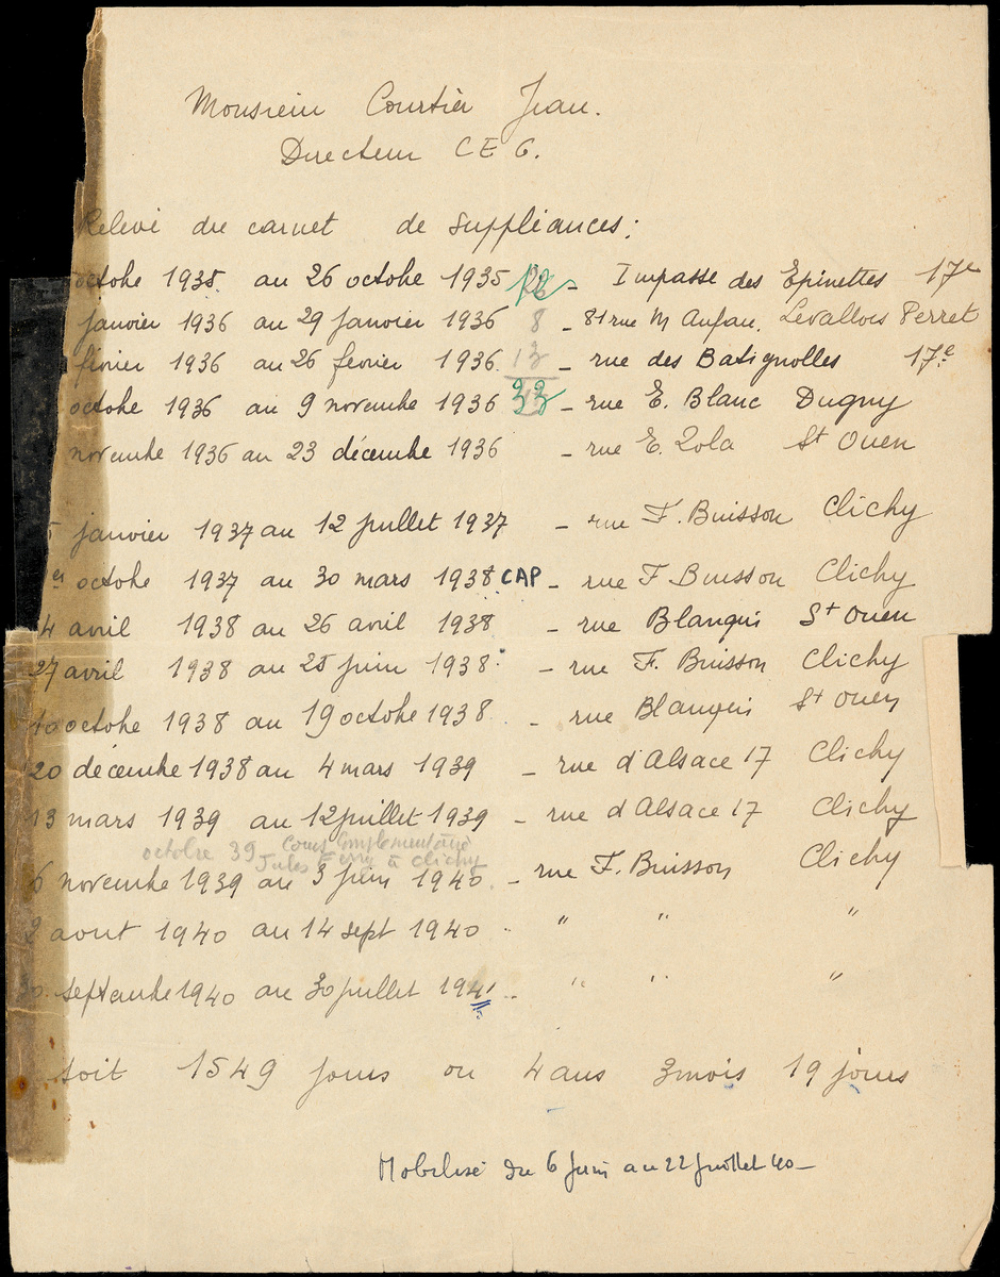 Monsieur Courtier Jean.
Directeur CEG.
Relevé du carnet de suppléances:
octobre 1935. au 26 octobre 1935 12 - Impasse des Epinettes 17e
janvier 1936 au 29 janvier 1936 8 - 81 rue M Aufau. Levallois Perret
février 1936 au 26 fevrier 1936. 13 - rue des Batignolles 17e
octobre 1936 au 9 novembre 1936 33 - rue E. Blanc Dugny
novembre 1936 au 23 décembre 1936 - rue E. Zola St Ouen
janvier 1937 au 12 juillet 1937 - rue F. Buisson Clichy
er octobre 1937 au 30 mars 1938 CAP - rue F Buisson Clichy
4 avril 1938 au 26 avril 1938 - rue Blanqui St Ouen
27 avril 1938 au 25 juin 1938. - rue F. Buisson Clichy
10 octobre 1938 au 19 octobre 1938. - rue Blanqui St Ouen
20 décembre 1938 au 4 mars 1939 - rue d'Alsace 17 Clichy
13 mars 1939 au 12 juillet 1939 - rue d'Alsace 17 Clichy
octobre 39 Cours Complémentaire
Jules Ferry à Clichy
6 novembre 1939 au 3 juin 1940. - rue F. Buisson Clichy
aout 1940 au 14 sept 1940 - " " "
septembre 1940 au 30 juillet 1941. " " "
soit 1549 jours ou 4 ans 3 mois 19 jours
Mobilisé du 6 juin au 22 juillet 40 -